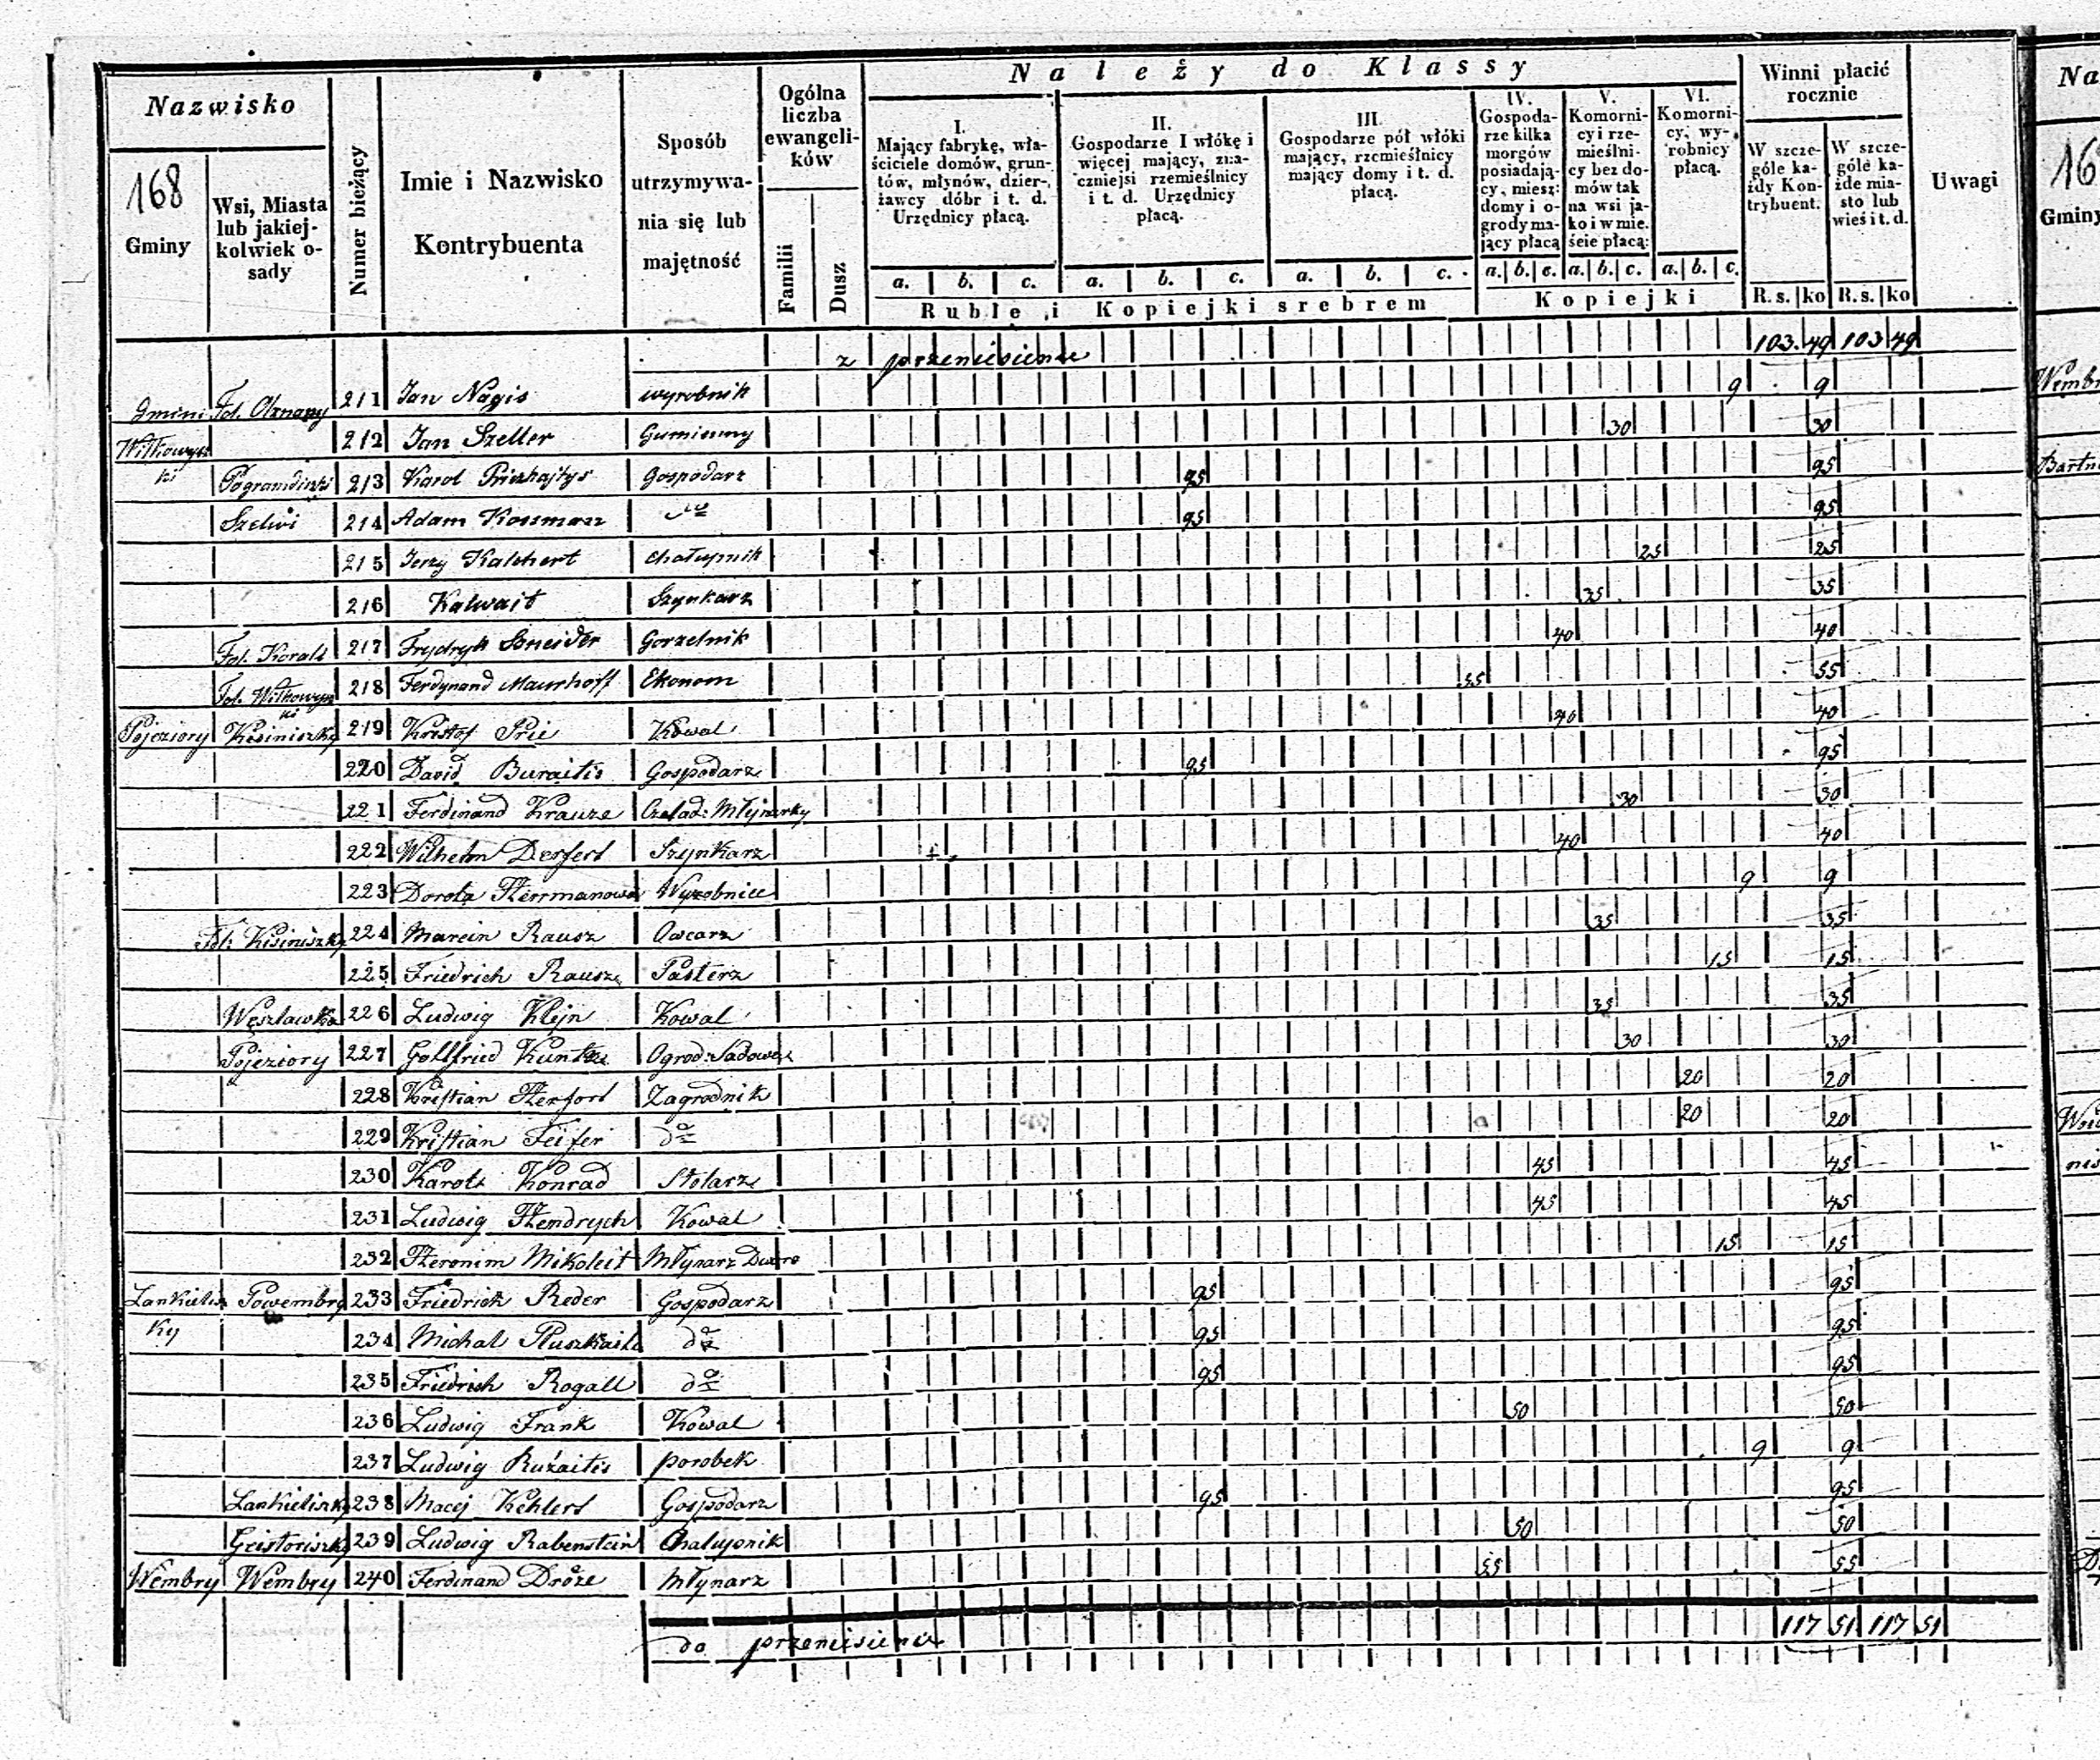 Nazwisko
168
Gminy
Wsi, Miasta lub jakiej-kolwiek o-sady
Numer bieżący
Imie i Nazwisko Kontrybuenta
Sposób utrzymywa-nia się lub majętność
Ogólna liczba ewangeli-ków
Familii
Dusz
Należy do Klassy
I. Mający fabrykę, wła-ściciele domów, grun-tów, młynów, dzier-żawcy dóbr i t. d. Urzędnicy płacą.
II. Gospodarze I włókę i więcej mający, zna-czniejsi rzemieślnicy i t. d. Urzędnicy płacą.
III. Gospodarze pół włóki mający, rzemieślnicy mający domy i t. d. płacą.
IV. Gospoda-rze kilka morgów posiadają-cy, miesz: domy i o-grody ma-jący płacą
V. Komorni-cy i rze-mieślni-cy bez do-mów tak na wsi ja-ko i w mie. ście płacą:
VI. Komorni-cy, wy-robnicy płacą.
a. b. c. a. b. c. a. b. c. a. b. c. a. b. c. a. b. c.
Ruble i Kopiejki srebrem
Kopiejki
Winni płacić rocznie
W szcze-góle ka-żdy Kon-trybuent.
W szcze-góle ka-żde mia-sto lub wieś i t. d.
R. s. ko R. s. ko
Uwagi
z przeniesienia 103. 49 103 49
Gmini Fol. 211 Jan Nagis wyrobnik 9 9
Wiłkowysz 212 Jan Szeller Gumienny 30 30
ki 213 Karol Gospodarz 95 95
Szelwi 214 Adam Kossman do 95 95
215 Jerzy Kalchert Chałupnik 25 25
216 Kalwait Szynkarz 35 35
Fol. Korals 217 Frydryk Sneider Gorzelnik 40 40
Fol. Wiłkowysz 218 Ferdynand Maurhoff Ekonom 55 55
ki
Pojeziory Kisiniszky 219 Kristof Prie Kowal 40 40
220 David Buraitis Gospodarz 95 95
221 Ferdinand Krauze Czelad: Młynarky 30 30
222 Wilhelm Derfert Szynkarz 40 40
223 Dorota Herrmanowa Wyrobnica 9 9
Fol: Kisiniszky 224 Marcin Rausz Owcarz 35 35
225 Friedrich Rausz Pasterz 15 15
Weszlawka 226 Ludwig Klejn Kowal 35 35
Pojeziory 227 Gottfried Kuntze Ogrod: Sadowy 30 30
228 Kristian Herfort Zagrodnik 20 20
229 Kristian Feifer do 20 20
230 Karol Konrad Stolarz 45 45
231 Ludwig Hendrych Kowal 45 45
232 Heronim Mikoleit Młynarz Dworo 15 15
Lankielis Powembry 233 Friedrich Reder Gospodarz 95 95
ky 234 Michal Pluszkait do 95 95
235 Friedrich Rogall do 95 95
236 Ludwig Frank Kowal 50 50
237 Ludwig Rużaitis parobek 9 9
Lankieliszky 238 Macej Kehlert Gospodarz 95 95
Geistoriszky 239 Ludwig Rabenstein Chalupnik 50 50
Wembry Wembry 240 Ferdinand Dröze Młynarz 55 55
do przeniesienia 117 51 117 51
Na
16
Gminy